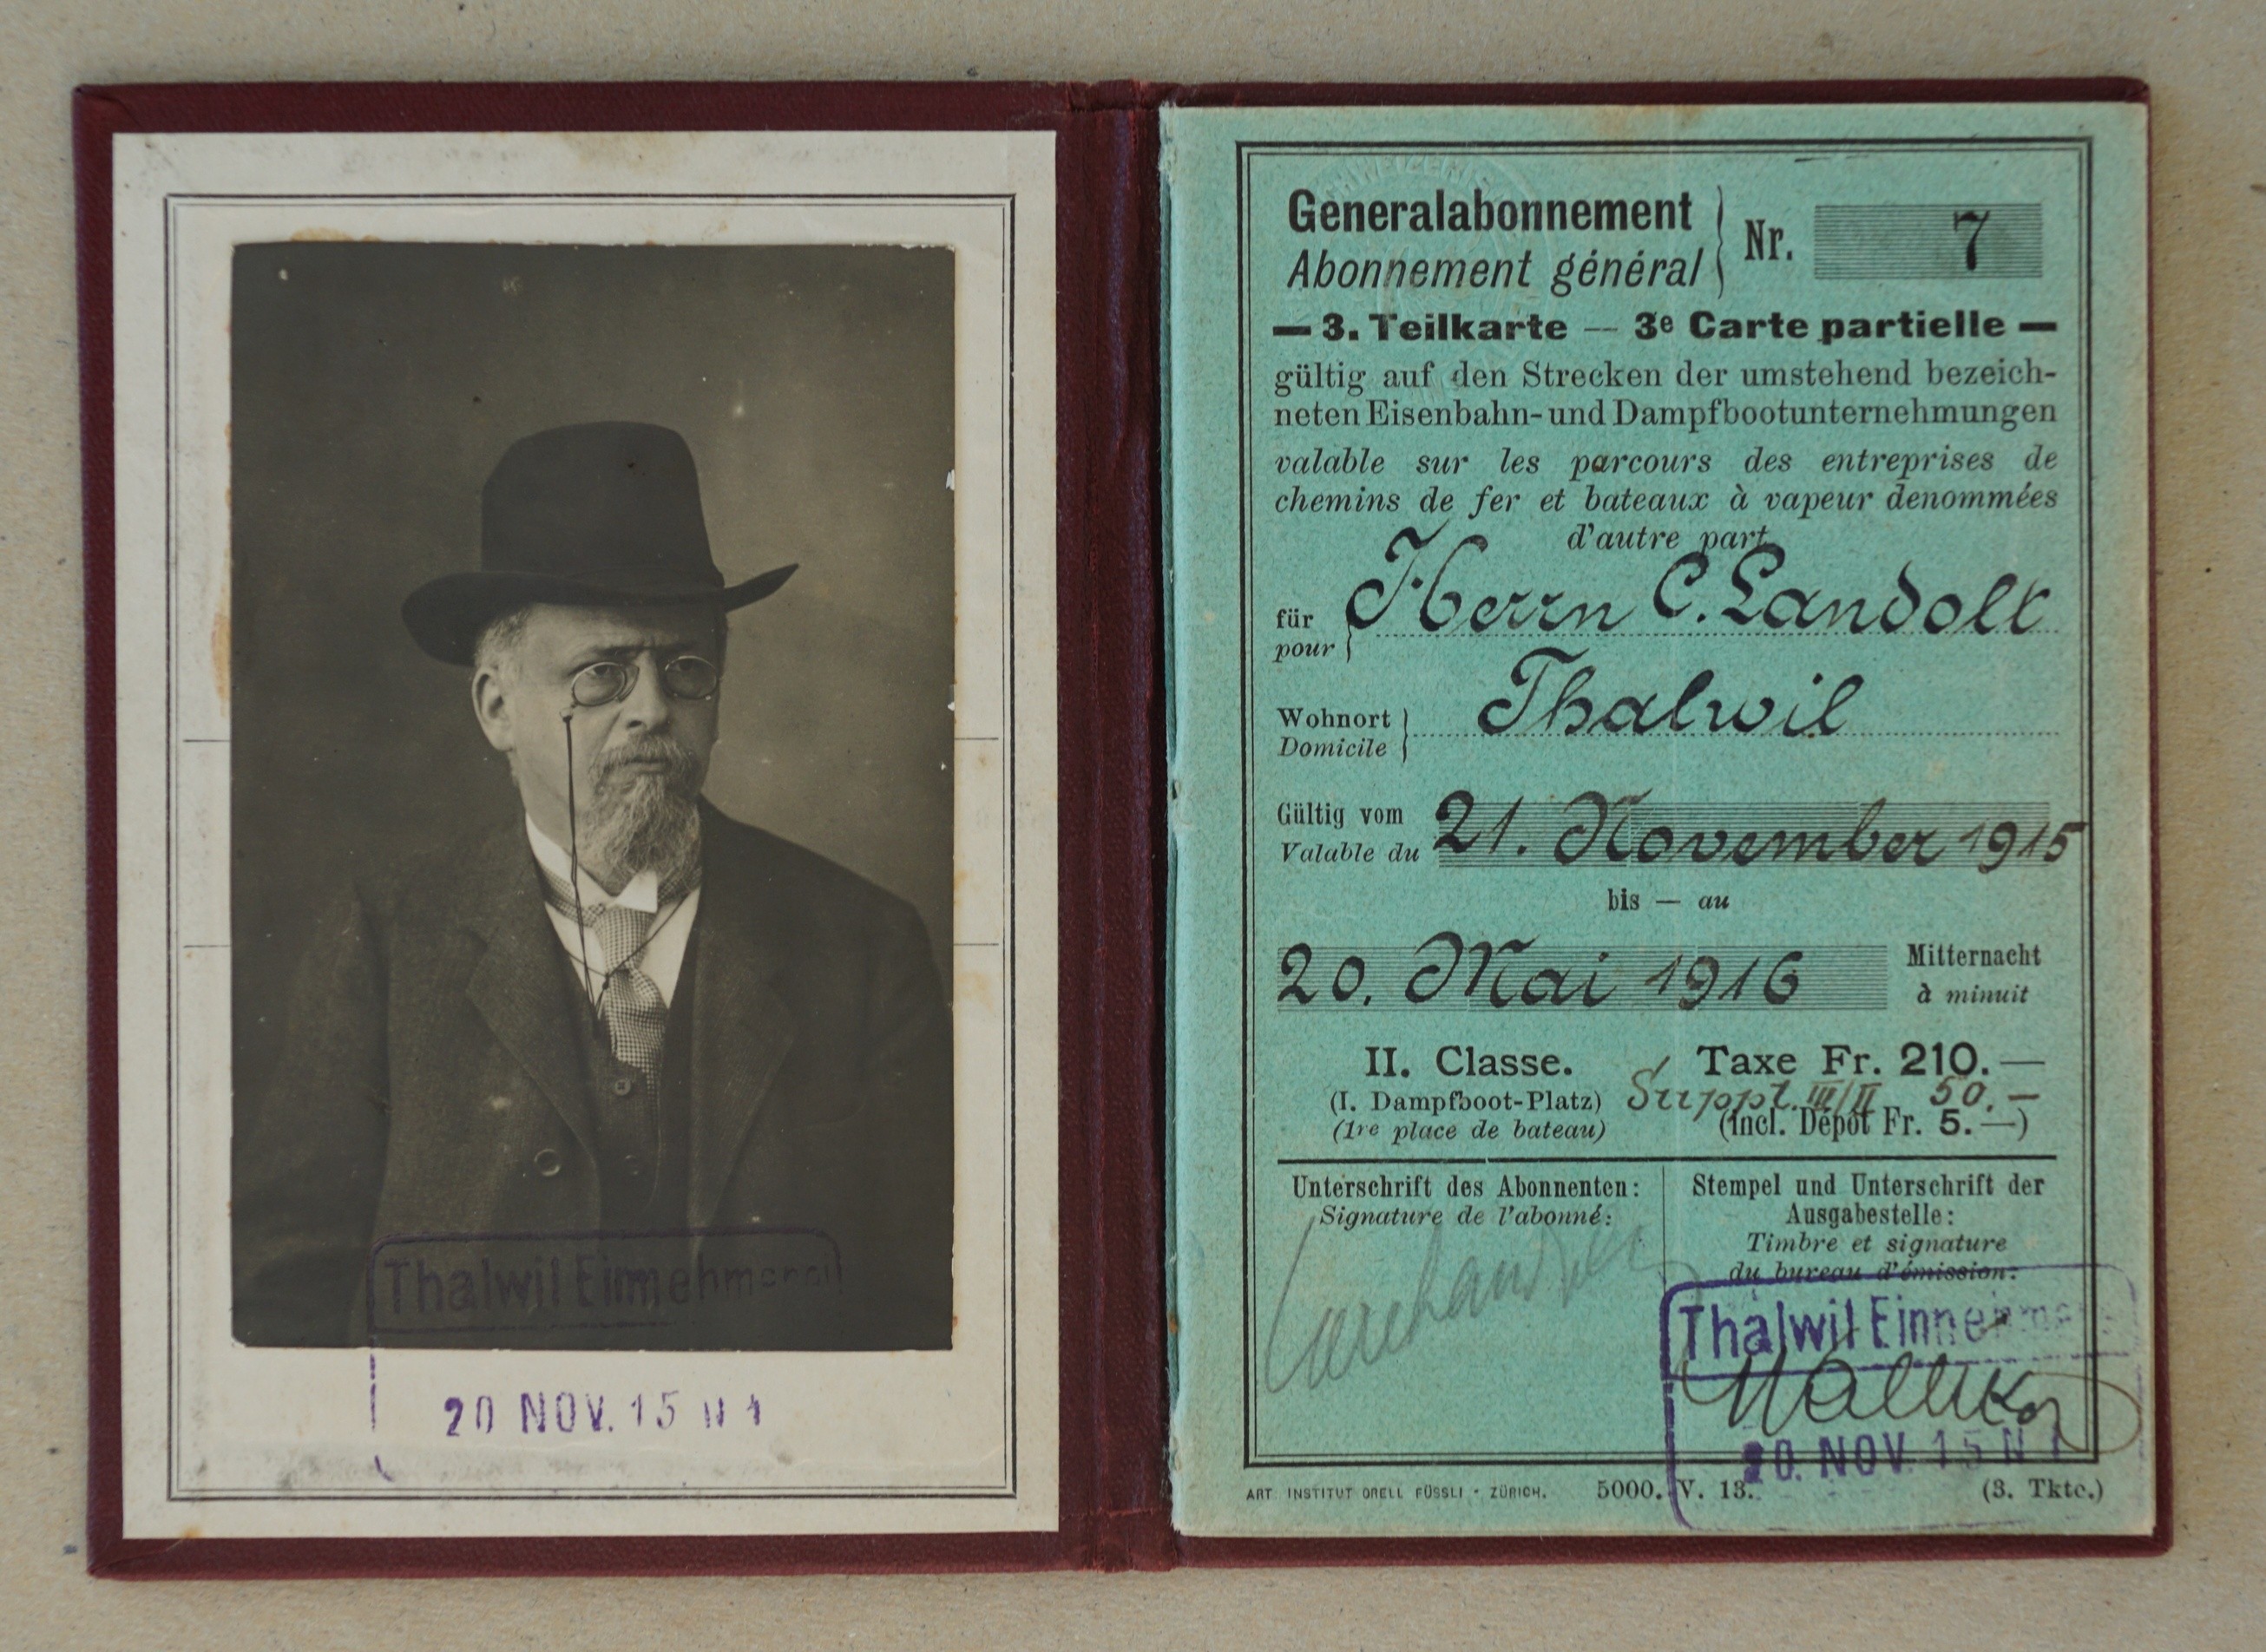 Thalwil Einnehmerei
20 NOV. 15 N 1
Generalabonnement
Abonnement général
Nr. 7
— 3. Teilkarte — 3e Carte partielle —
gültig auf den Strecken der umstehend bezeich-
neten Eisenbahn- und Dampfbootunternehmungen
valable sur les parcours des entreprises de
chemins de fer et bateaux à vapeur dénommées
d'autre part
für Herrn C. Landolt
pour
Wohnort Thalwil
Domicile
Gültig vom 21. November 1915
Valable du
bis — au
20. Mai 1916 Mitternacht
à minuit
II. Classe. Taxe Fr. 210.—
Suppl. III/II 50.—
(I. Dampfboot-Platz) (incl. Dépôt Fr. 5.—)
(1re place de bateau)
Unterschrift des Abonnenten:
Signature de l'abonné:
Stempel und Unterschrift der
Ausgabestelle:
Timbre et signature
du bureau d'émission:
Thalwil Einnehme
20. NOV. 15 N 1
ART. INSTITUT ORELL FÜSSLI - ZÜRICH. 5000. V. 13. (3. Tktc.)